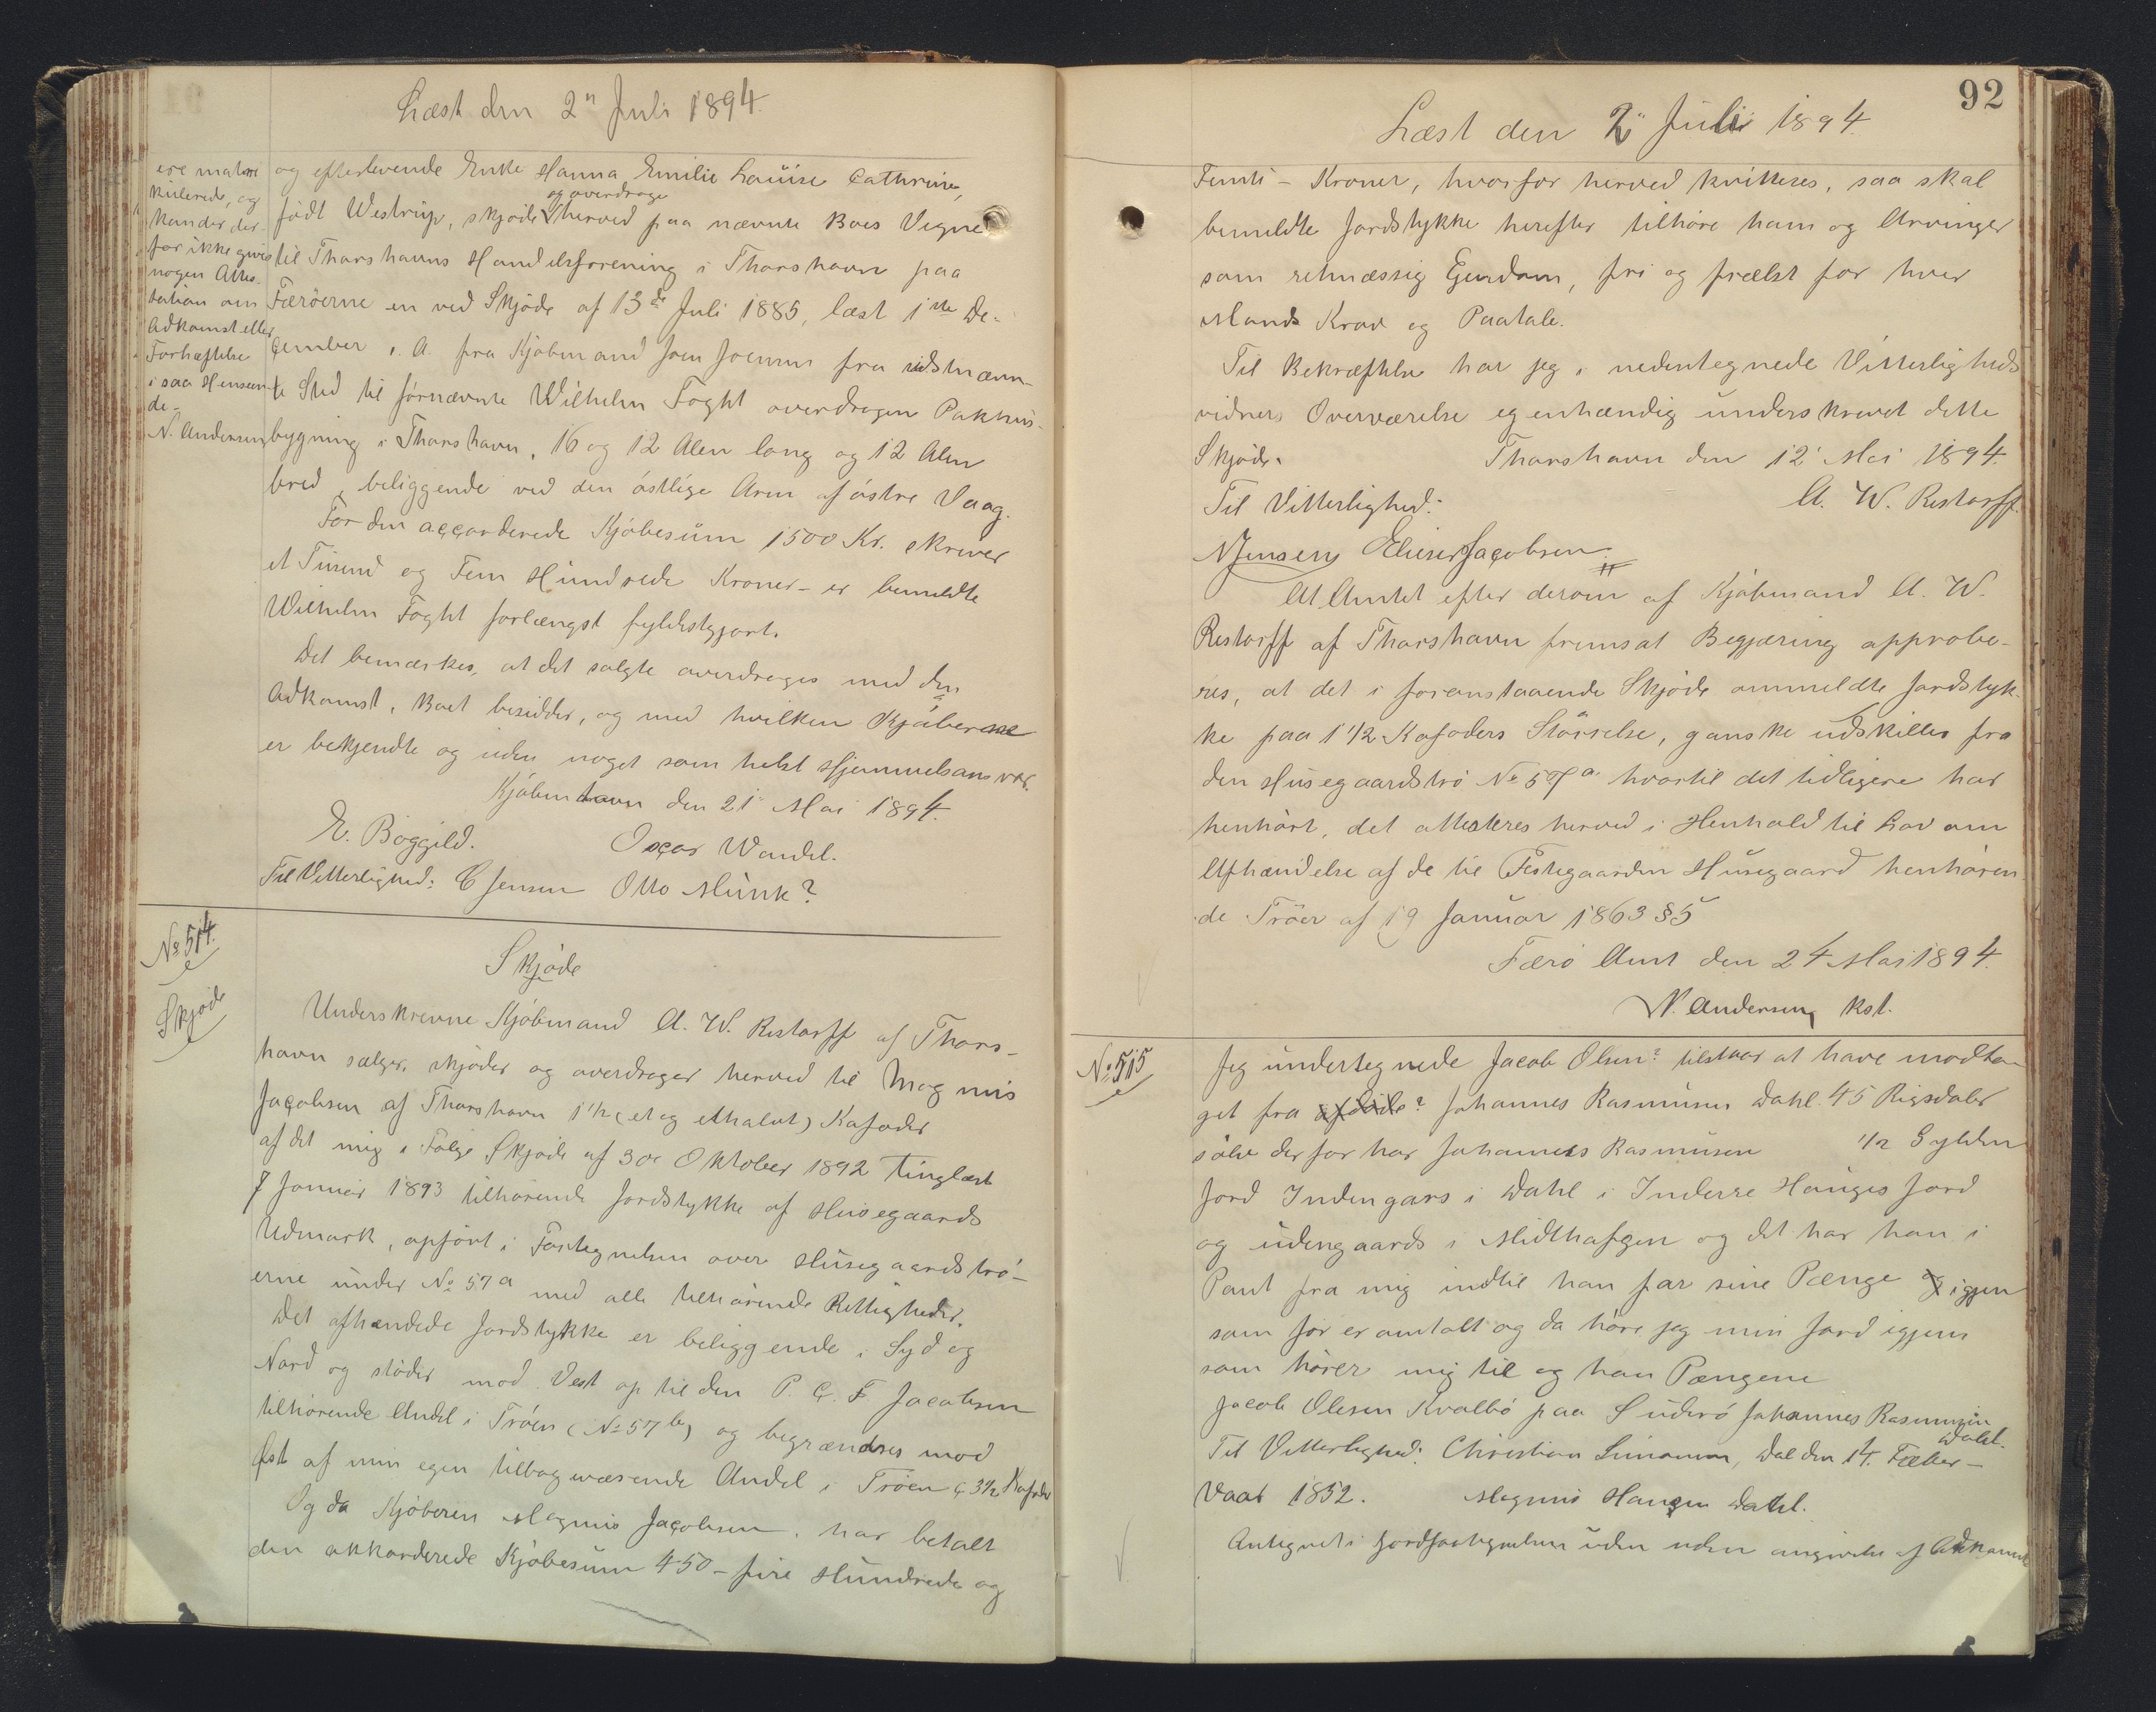 Læst den 2" Juli 1894.
ere matri
kulerede, og
kan der der-
for ikke gives
nogen Attes-
tation om
Adkomst eller
Forhæftelse
i saa Henseen-
de.
N. Andersen
og efterlevende Enke Hanna Emilie Louise Cathrine,
født Westrup, skjøde og overdrage herved paa nævnte Boes Vegne
til Thorshavns Handelsforening i Thorshavn paa
Færøerne en ved Skjøde af 13de Juli 1885, læst 1ste De-
cember s. A. fra Kjøbmand Joen Joensen fra sidstnævn-
te Sted til førnævnte Wilhelm Foght overdragen Pakhus-
bygning i Thorshavn, 16 og 12 Alen lang og 12 Alen
bred, beliggende ved den østlige Arm af østre Vaag.
For den accorderede Kjøbesum 1500 Kr. skriver
et Tusend og Fem Hundrede Kroner - er bemeldte
Wilhelm Foght forlængst fyldestgjort.
Det bemærkes, at det solgte overdrages med den
Adkomst, Boet besidder, og med hvilken Kjøberne
er bekjendte og uden noget som helst Hjemmelsansvar.
Kjøbenhavn den 21" Mai 1894.
E. Bøggild. Oscar Wandel.
Til Vitterlighed: C Jensen Otto Munk?
No 514.
Skjøde
Skjøde
Underskrevne Kjøbmand A. W. Restorff af Thors-
havn sælger, skjøder og overdrager herved til Magnus
Jacobsen af Thorshavn 1 1/2 (et og ethalvt) Kofoder
af det mig i Følge Skjøde af 30e Oktober 1892 tinglæst
7 Januar 1893 tilhørende Jordstykke af Husegaards
Udmark, opført i Fortegnelsen over Husegaardstrø-
erne under No 57a med alle tilhørende Rettigheder.
Det afhændede Jordstykke er beliggende i Syd og
Nord og støder mod Vest op til den P. C. F Jacobsen
tilhørende Andel i Trøen (No 57b) og begrændses mod
Øst af min egen tilbageværende Andel i Trøen c 3 1/2 Kofoder
Og da Kjøberen Magnus Jacobsen har betalt
den akkorderede Kjøbesum 450 - fire Hundrede og
92
Læst den 2" Juli 1894.
Femti - Kroner, hvorfor herved kvitteres, saa skal
bemeldte Jordstykke herefter tilhøre ham og Arvinger
som retmæssig Ejendom, fri og frælst for hver
Mands Krav og Paatale.
Til Bekræftelse har jeg i nedentegnede Vitterligheds
vidners Overværelse egenhændig underskrevet dette
Skjøde. Thorshavn den 12' Mai 1894.
Til Vitterlighed: A. W. Restorff.
NJensen Elieser Jacobsen
At Amtet efter derom af Kjøbmand A. W.
Restorff af Thorshavn fremsat Begjæring approbe-
res, at det i foranstaaende Skjøde ommeldte Jordstyk-
ke paa 1 1/2 Kofoders Størrelse, ganske udskilles fra
den Husegaardstrø No 57a hvortil det tidligere har
henhørt, det attesteres herved i Henhold til Lov om
Afhændelse af de til Festegaarden Husegaard henhøren-
de Trøer af 19 Januar 1863 § 5
Færø Amt den 24 Mai 1894.
N. Andersen kst.
No 515
Jeg undertegnede Jacob Olsen? tilstaar at have modta-
get fra afdøde? Johannes Rasmusen Dahl 45 Rigsdaler
sølv derfor har Johannes Rasmusen 1/2 Gylden
Jord Indengars i Dahl i Inderre Hauges Jord
og udengaards i Midthafgen og det har han i
Pant fra mig indtil han far sine Pænge og igjen
som før er omtalt og da høre jeg min Jord igjen
som hører mig til og han Pængene
Jacob Olesen Kvalbø paa Suderø Johannes Rasmusin
Dahl.
Til Vitterlighed: Christian Simonsen, Dal den 14. Feber-
Vaar 1852. Magnus Hansen Dahl.
Antegnet i Jordfortegnelsen uden uden angivelse af Adkomst